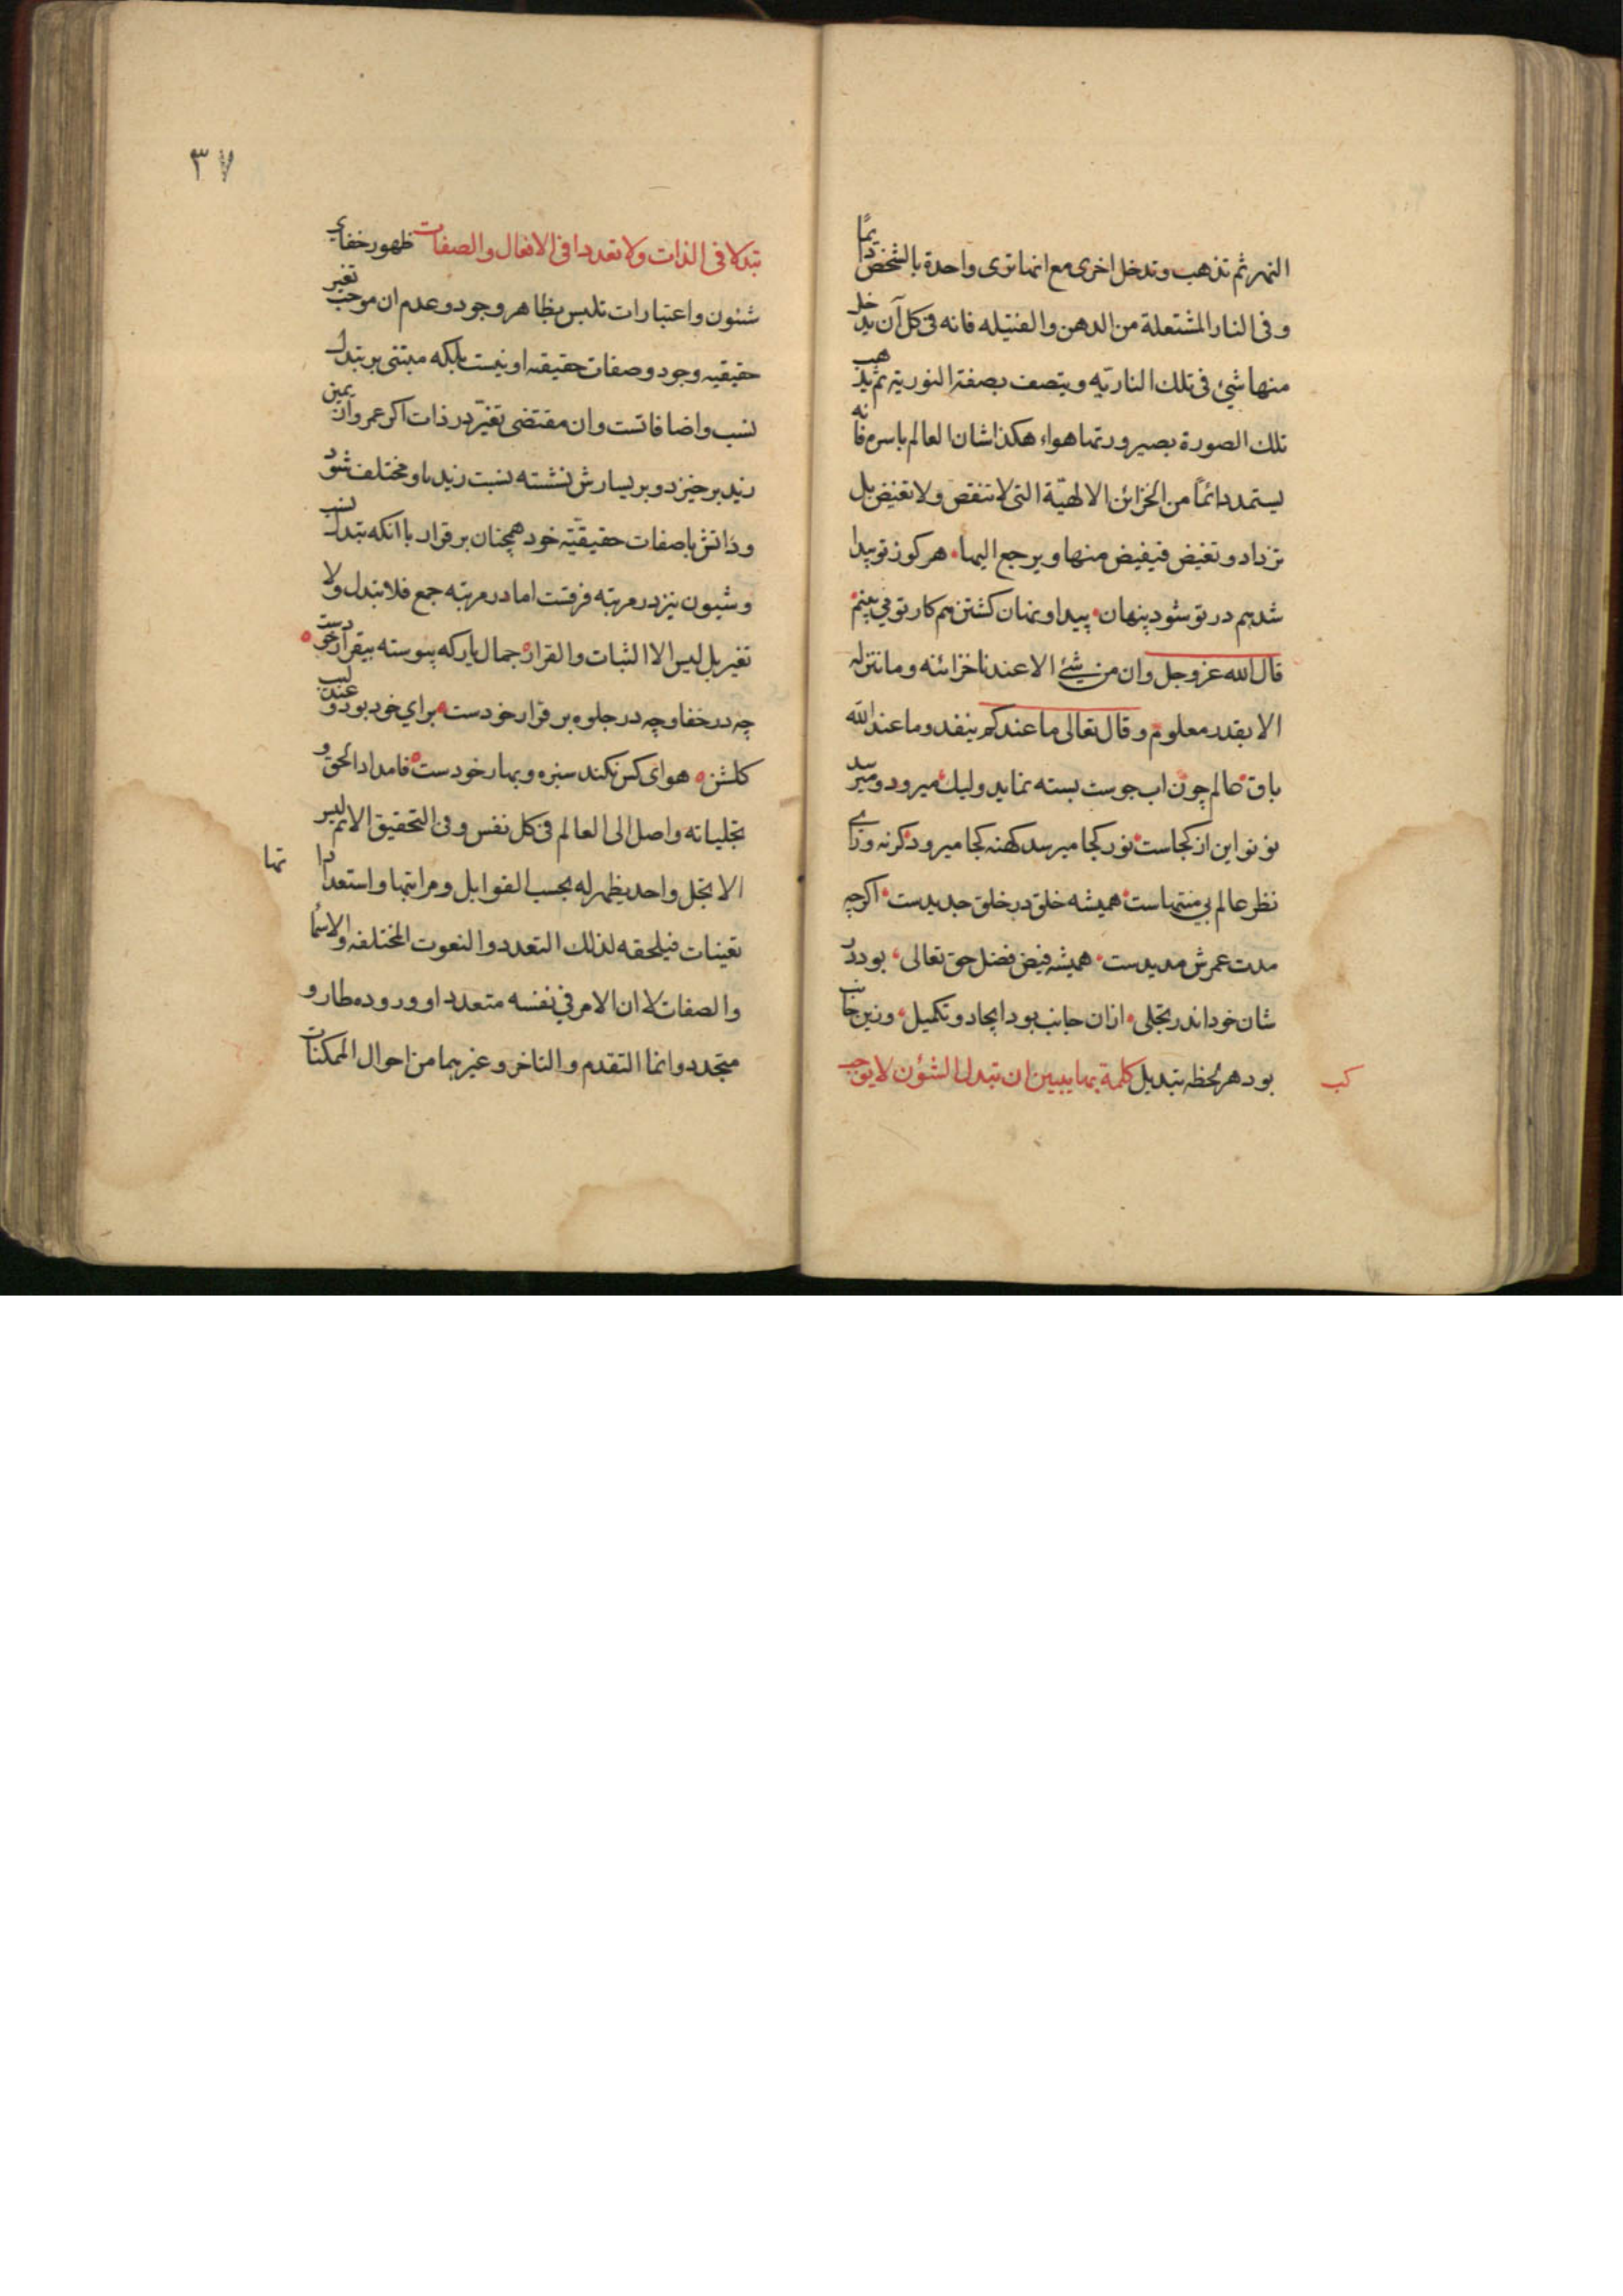 النهر ثم تذهب و تدخل اخرى مع انها ترى واحدة بالشخص دائمًا
و فى النار المشتعلة من الدهن و الفتيله فانه فى كل آن يدخل
منها شيئ فى تلك الناريّه و يتصف بصفة النورية ثم يذهب
تلك الصورة بصيرورتها هواء هكذا شان العالم باسره فانه
يستمد دائماً من الخزائن الالهيّة التى لا تنقص و لا تغيض بل
تزداد و تغيض فيفيض منها و يرجع اليها هر كوز تو پيدا
شد هم در تو شود پنهان پيدا و نهان كشتن هم كار تو مى بينم
قال الله عز و جل و ان من شيئ الا عندنا خزائنه و ما ننزله
الا بقدر معلوم و قال تعالى ما عندكم ينفد و ما عند الله
باق عالم چون اب جوست بسته نمايد و ليك ميرود و ميرسد
نو نو اين از كجاست نور كجا ميرسد كهنه كجا ميرود كرنه وراى
نظر عالم بى منتهاست هميشه خلق در خلق جديدست اكرچه
مدت عمرش مديدست هميشه فيض فضل حق تعالى بود در
شان خود اندر تجلى ازان جانب بود ايجاد و تكميل وزين جانب
بود هر لحظه تبديل كلمة بها يبين ان تبدل الشؤن لا يوجب
كب
٣٧
تبدلا فى الذات و لا تعددا فى الافعال و الصفات ظهور خفاى
شئون و اعتبارات تلبس بظاهر وجود و عدم ان موجب تغير
حقيقيه وجود و صفات حقيقه او نيست بلكه مبتنى بر تبدل
نسب و اضافاتست و ان مقتضى تغيّر در ذات اكر عمرو از يمين
زيد برخيزد و بر يسارش نشسته نسبت زيد باو مختلف شود
و ذاتش با صفات حقيقيّه خود همچنان برقرار با انكه تبدل نسب
و شيون نيز در مرتبه فرقتست اما در مرتبه جمع فلا تبدل و لا
تغير بل ليس الا الثبات و القرار جمال يار كه پيوسته بيقرار خودست
چه در خفا و چه در جلوه برقرار خودست براى خود بود و عندليب
كلشن هواى كس نكند سبزه و بهار خودست فامداد الحق و
تجلياته واصل الى العالم فى كل نفس و فى التحقيق الاتم ليس
الا تجل واحد يظهر له بحسب القوابل و مراتبها و استعداداتها
تعينات فيلحقه لذلك التعدد و النعوت المختلفه و الاسما
و الصفات لا ان الامر فى نفسه متعدد او وروده طار و
متجدد و انما التقدم و التاخر و غيرهما من احوال الممكنات